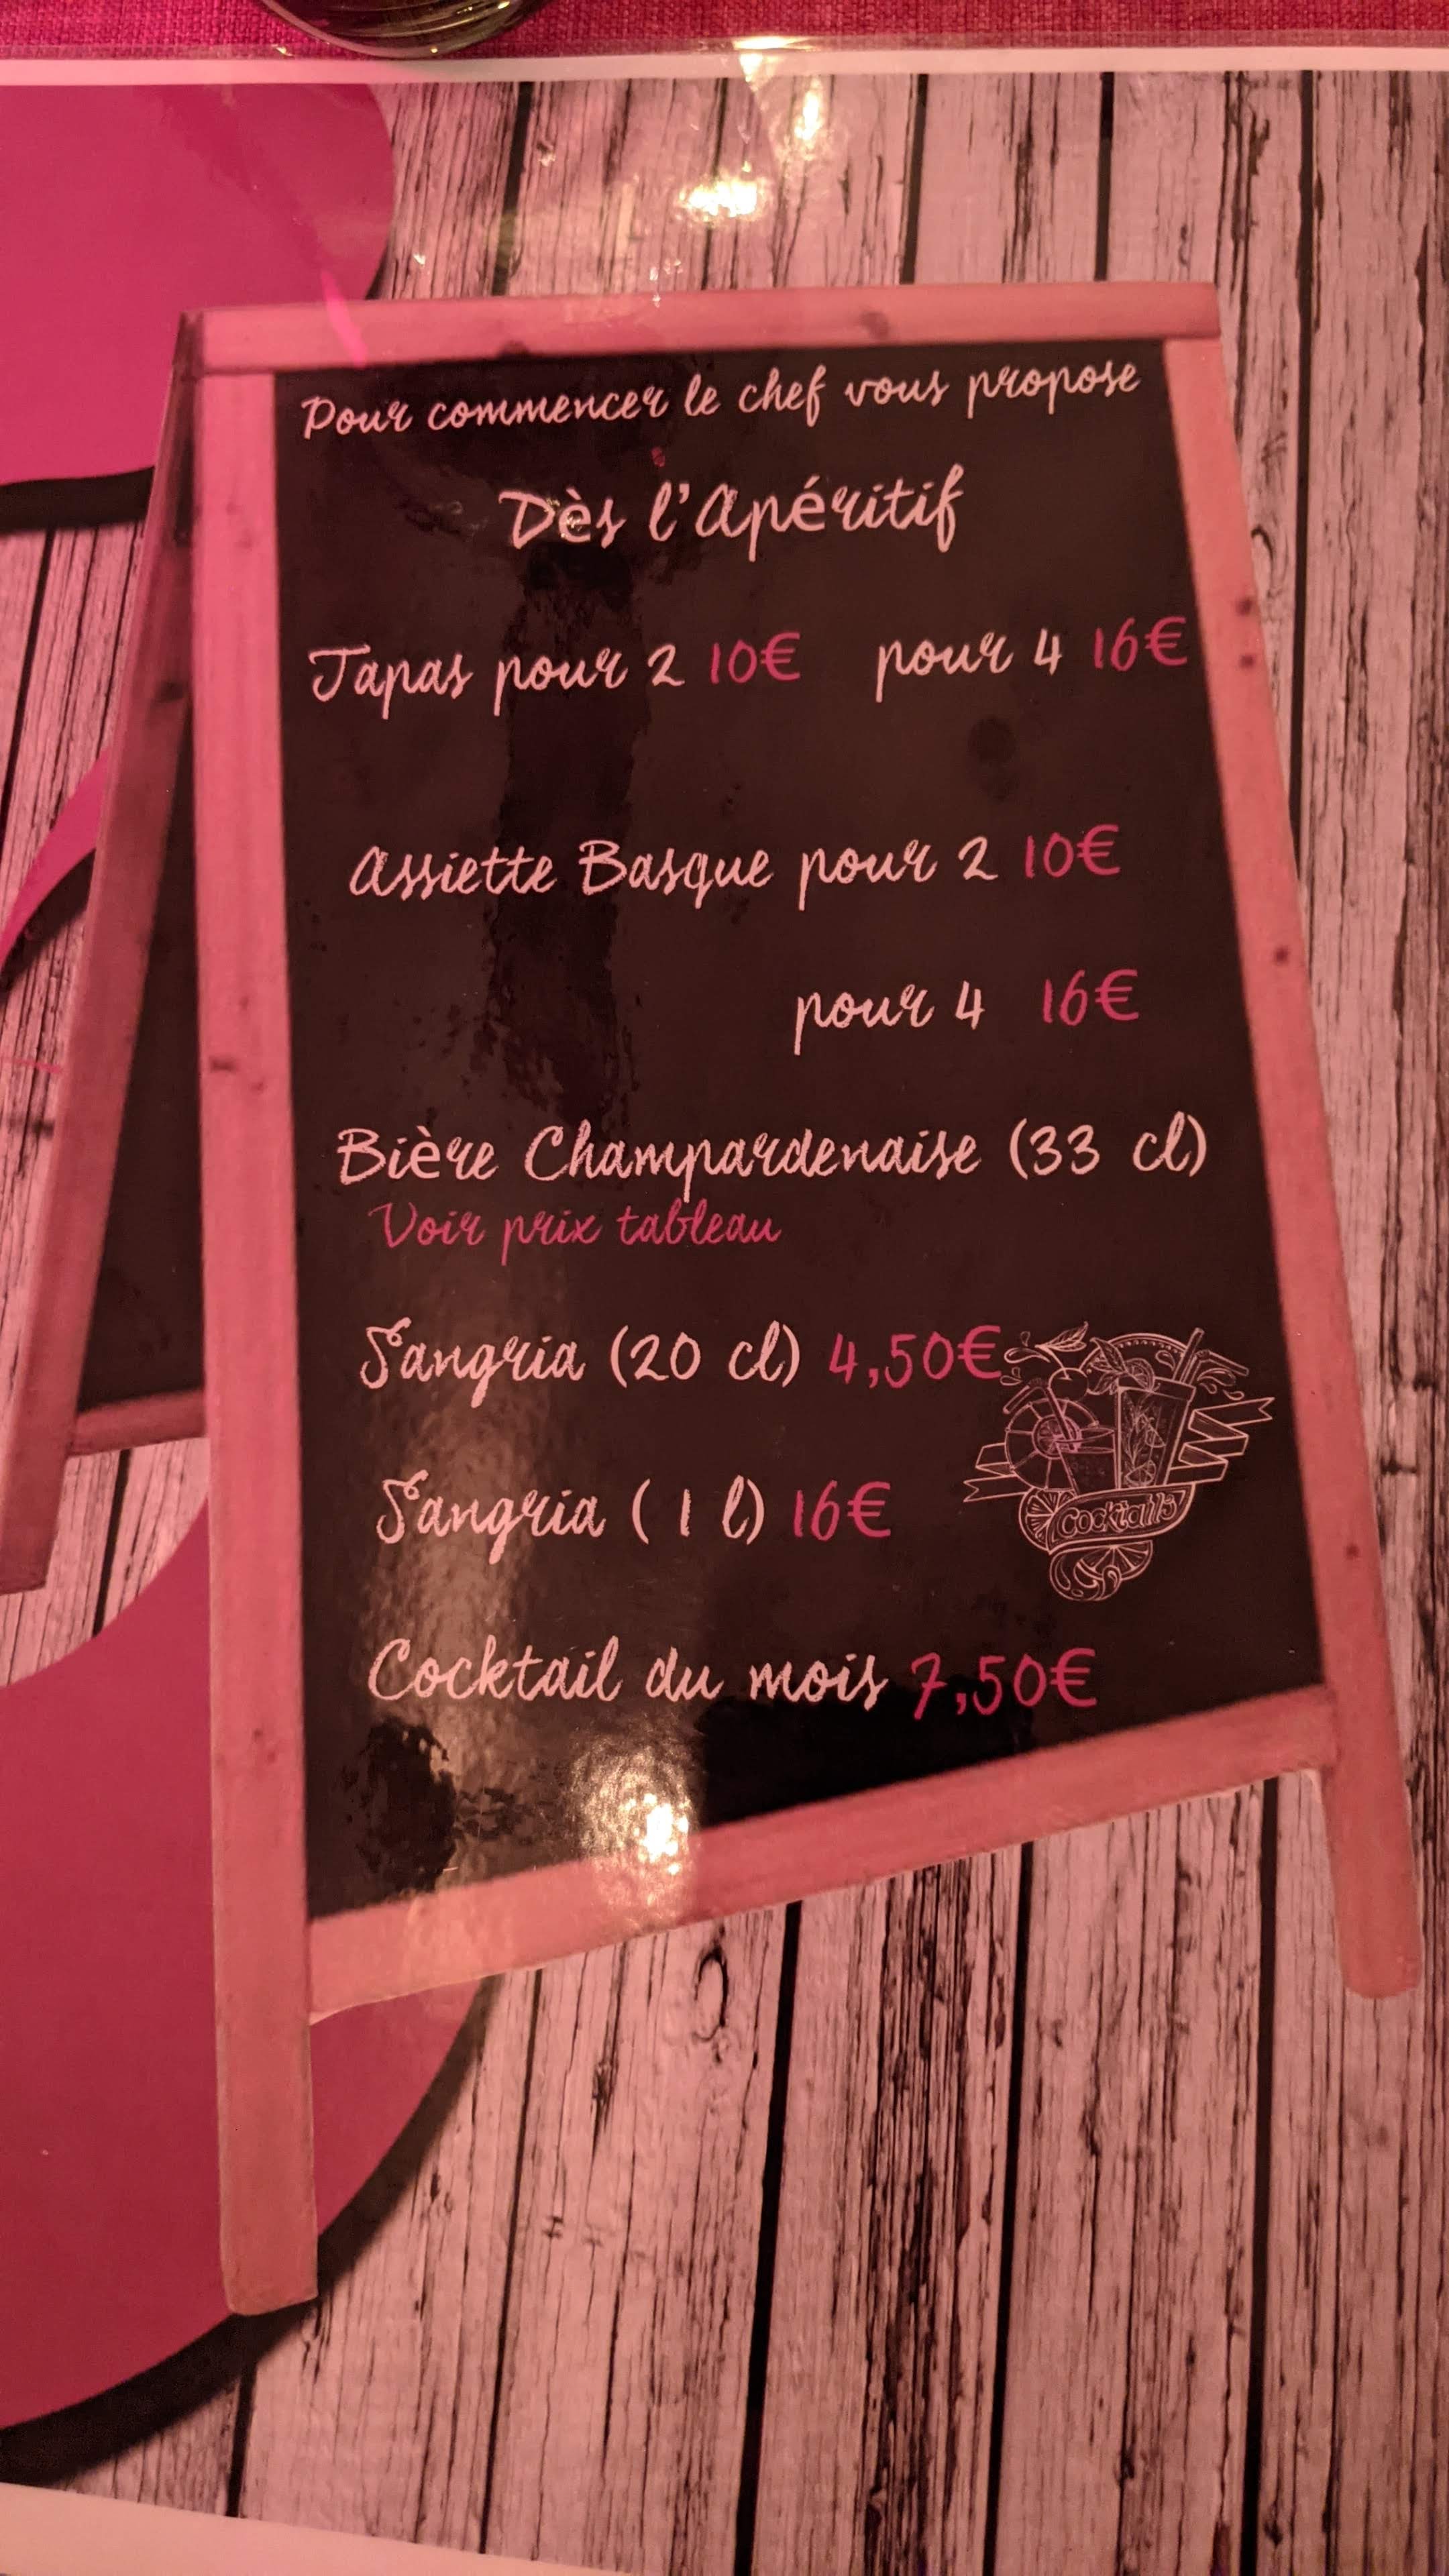 Pour commencer le chef vous propose
Dès l'Apéritif
Tapas pour 2 10€ pour 4 16€
Assiette Basque pour 2 10€
pour 4 16€
Bière Champardenaise (33 cl)
Voir prix tableau
Sangria (20 cl) 4,50€
Sangria ( 1 l) 16€
cocktails
Cocktail du mois 7,50€